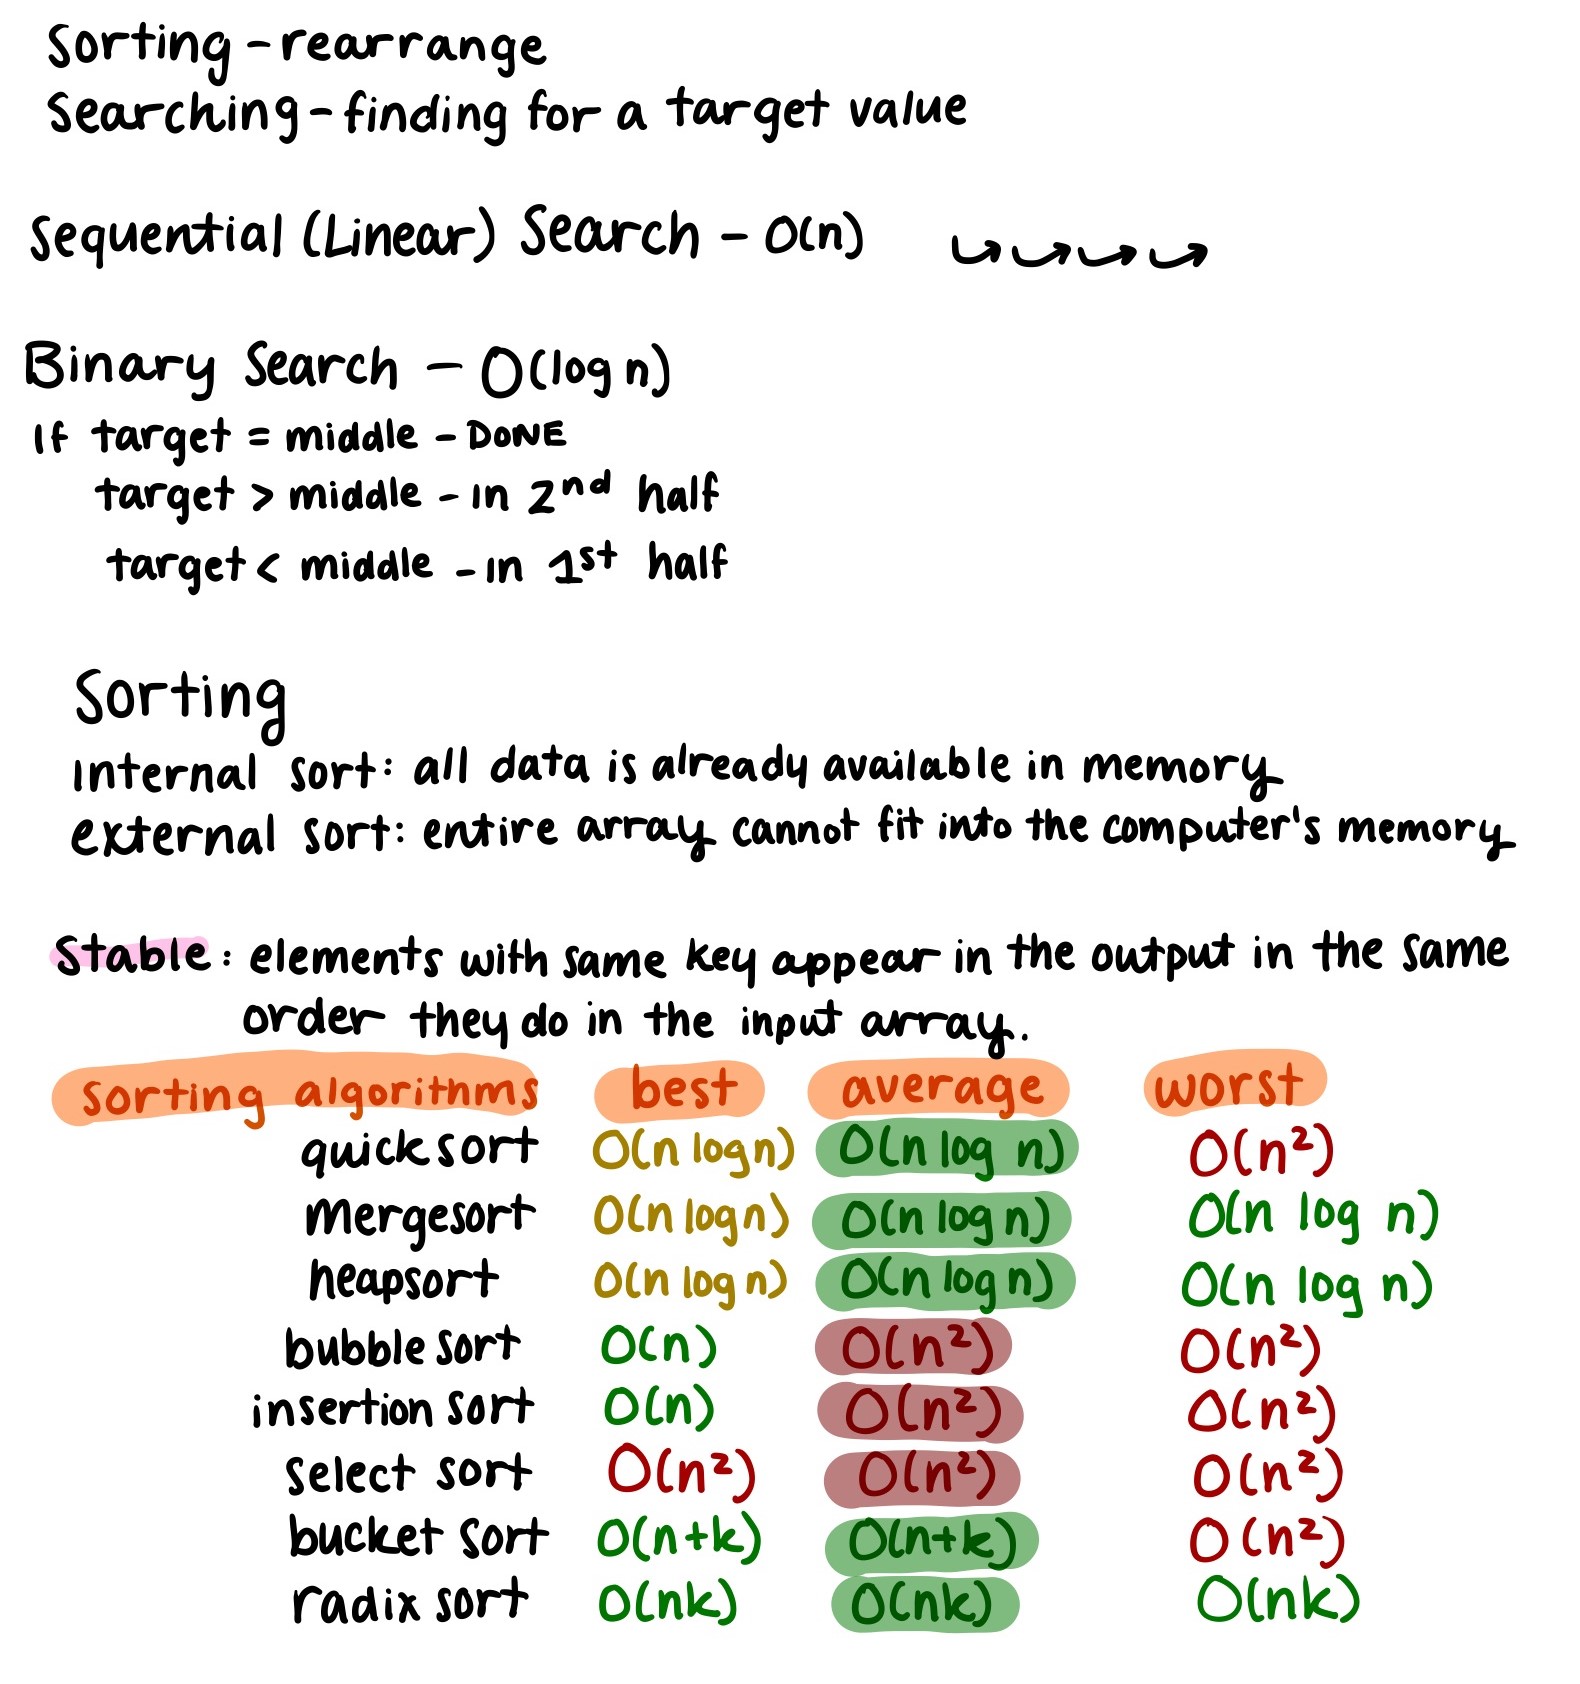 Sorting - rearrange
Searching - finding for a target value
Sequential (Linear) Search - O(n)
Binary Search - O(log n)
If target = middle - DONE
target > middle - in 2nd half
target < middle - in 1st half
Sorting
internal sort: all data is already available in memory
external sort: entire array cannot fit into the computer's memory
Stable: elements with same key appear in the output in the same
order they do in the input array.
sorting algorithms best average worst
quick sort O(n logn) O(n log n) O(n²)
mergesort O(n logn) O(n log n) O(n log n)
heapsort O(n log n) O(n log n) O(n log n)
bubble sort O(n) O(n²) O(n²)
insertion sort O(n) O(n²) O(n²)
select sort O(n²) O(n²) O(n²)
bucket sort O(n+k) O(n+k) O(n²)
radix sort O(nk) O(nk) O(nk)